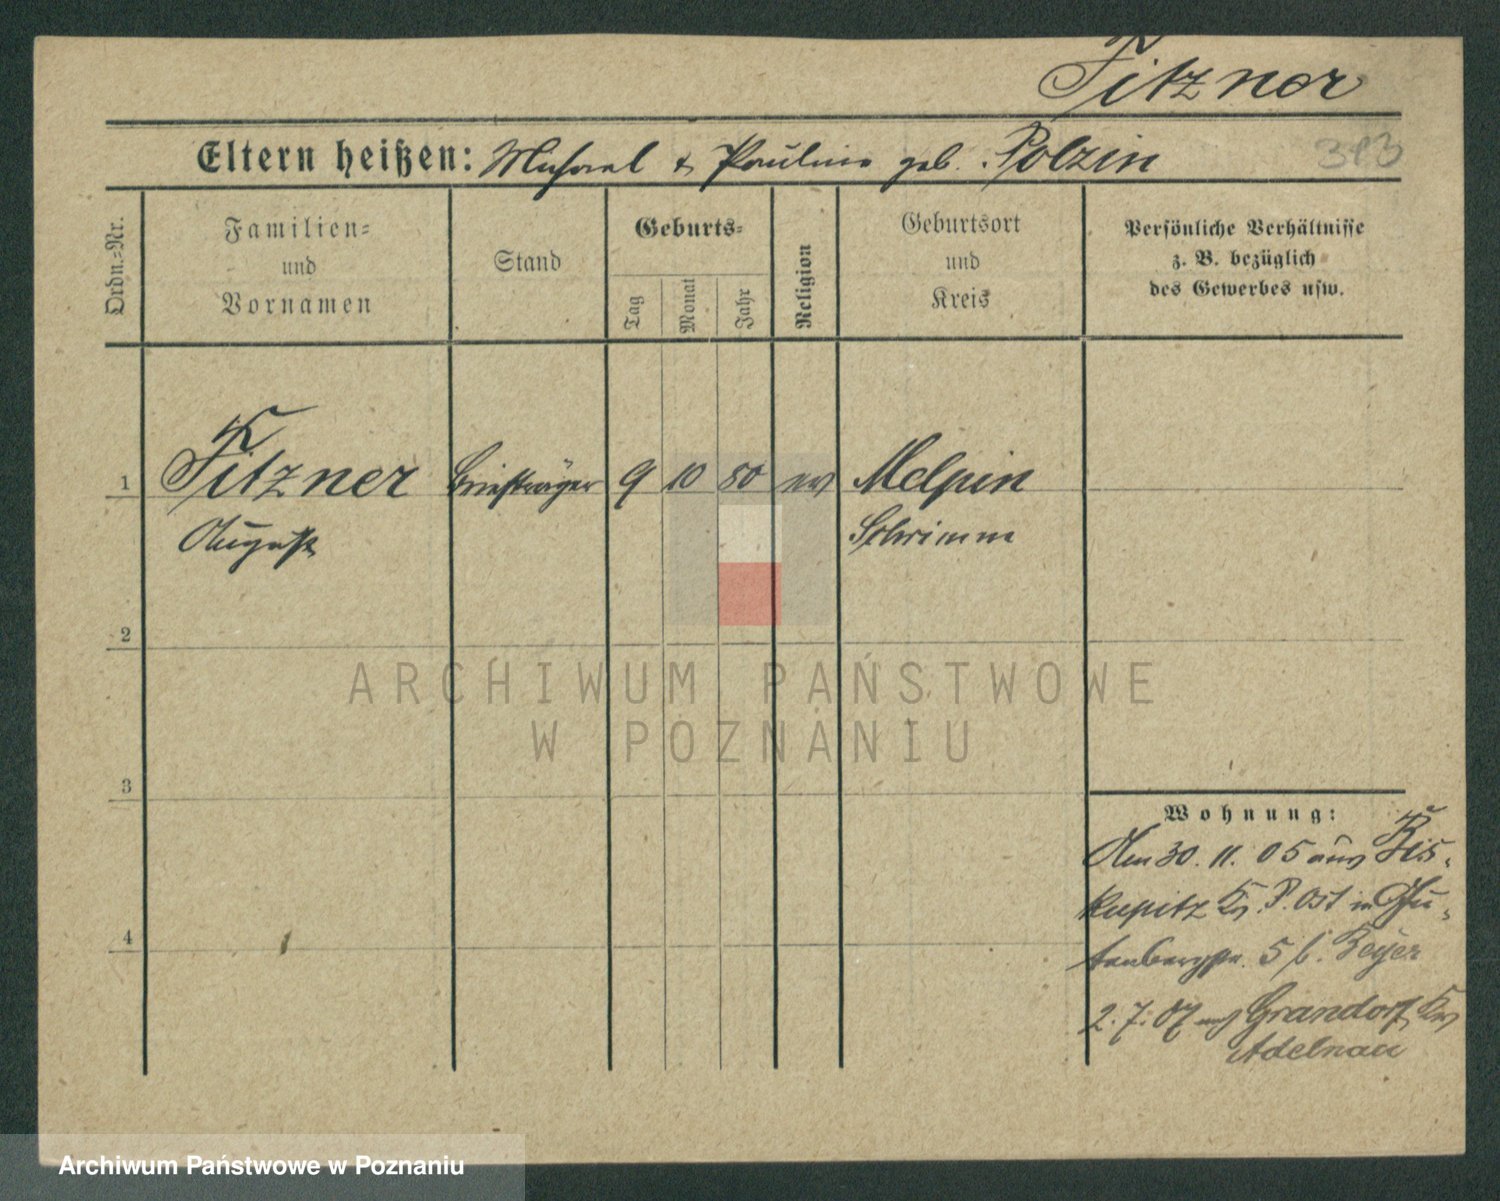 Fitzner
Eltern heißen: Michael & Pauline geb. Polzin
313
Ordn.-Nr.
Familien-
und
Vornamen
Stand
Geburts-
Tag
Monat
Jahr
Religion
Geburtsort
und
Kreis
Persönliche Verhältnisse
z. B. bezüglich
des Gewerbes usw.
1 Fitzner Briefträger 9 10 80 ev Melpin
August Schrimm
2
ARCHIWUM PAŃSTWOWE
W POZNANIU
3
Wohnung:
Am 30. 11. 05 aus Bis-
kupitz Kr. P. Ost in Gu-
tenbergstr. 5 b. Beyer
4
2. 7. 07 nach Grandorf Kr
Adelnau
Archiwum Państwowe w Poznaniu